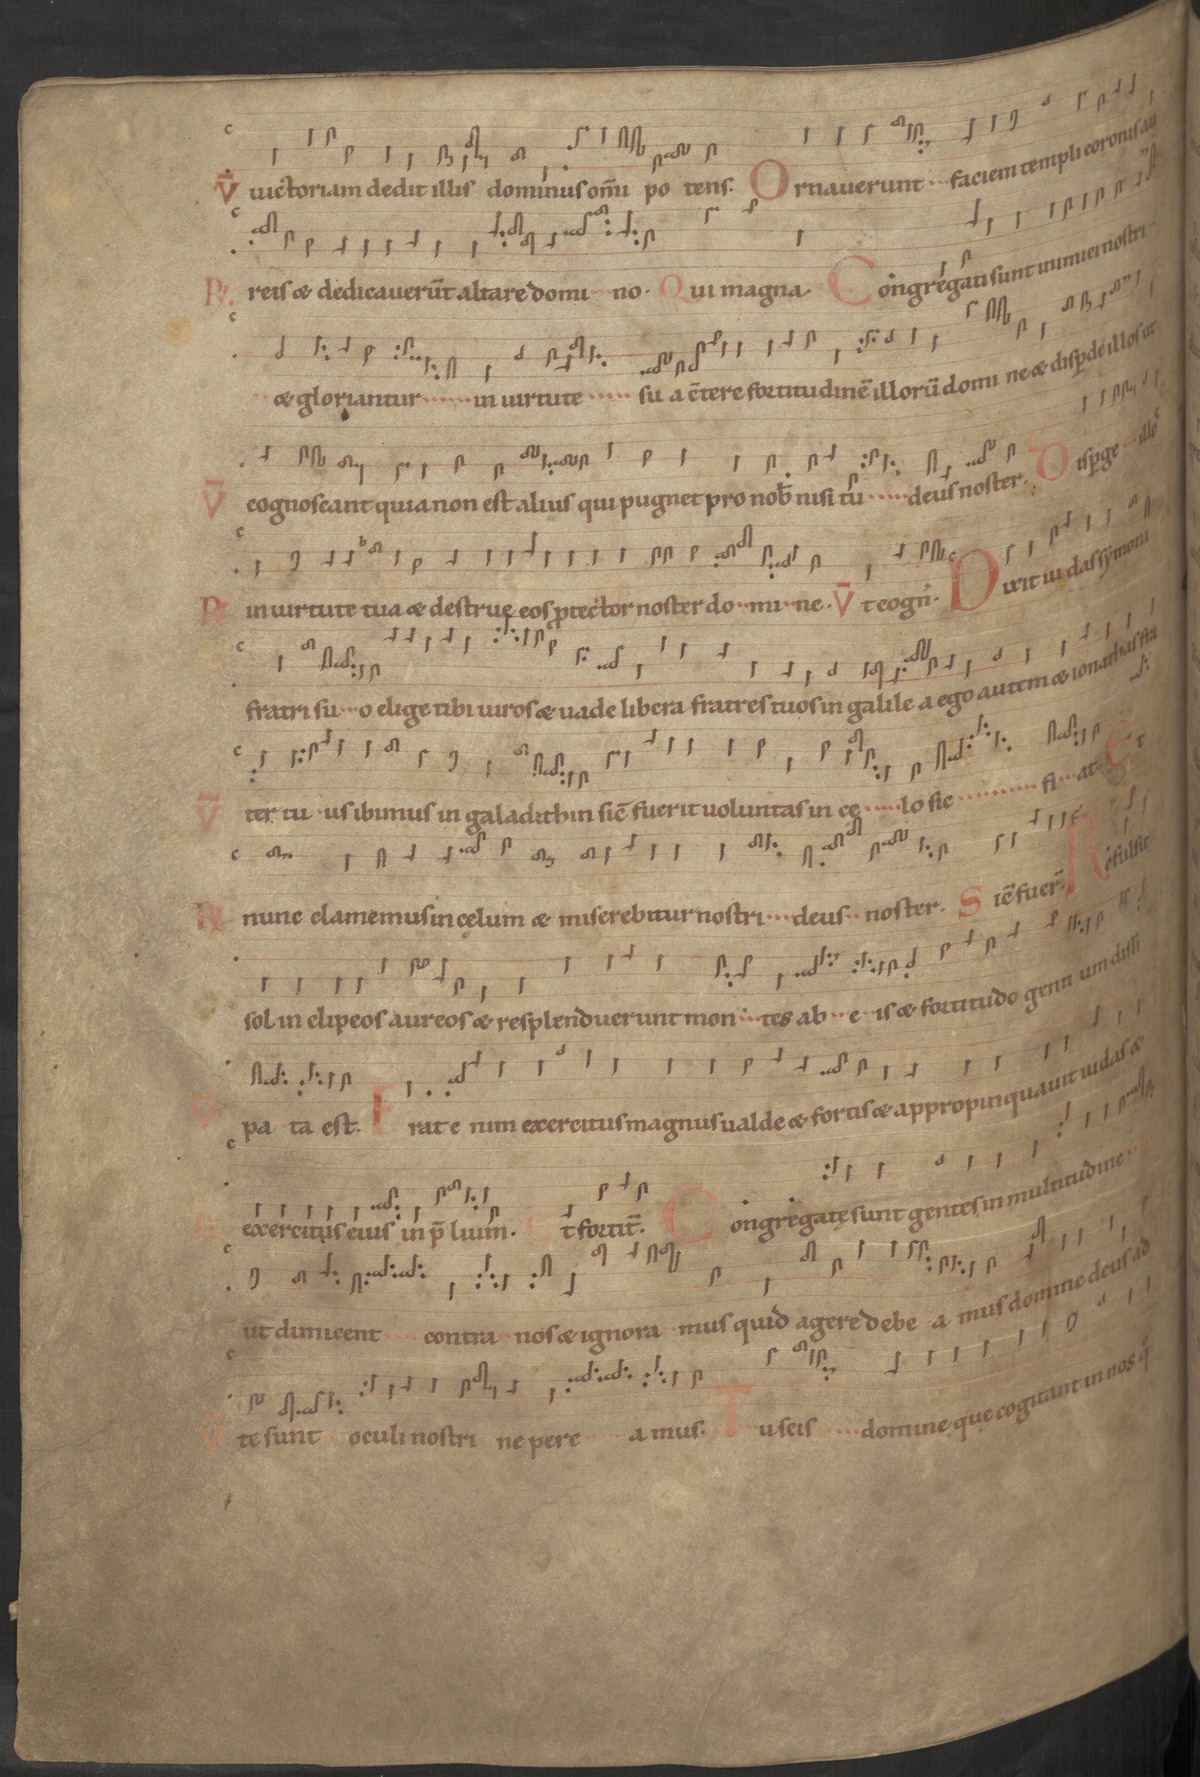 V̄ uictoriam dedit illis dominus om̄i po tens. Ornauerunt faciem templi coronis au
R. reis & dedicauer̄ut altare domi no. Qui magna. Congregati sunt inimici nostri
& gloriantur in uirtute su a c̄tere fortitudinē illorū domi ne & disp̱de illos ut
V̄ cognoscant quia non est alius qui pugnet pro nob̄ nisi tu deus noster. Disp̱ge illos
R. in uirtute tua & destrue eos ꝓtector noster do mi ne. V̄ t cogn̄. Dixit iudas symoni
fratri su o elige tibi uiros & uade libera fratres tuos in galile a ego autem & ionathas fra
V̄ ter tu us ibimus in galadithin sic̄ fuerit uoluntas in cę lo sic fi at. Et
R. nunc clamemus in cęlum & miserebitur nostri deus noster. Sic̄ fuer̄. Refulsit
sol in clipeos aureos & resplenduerunt mon tes ab e is & fortitudo genti um dissi
V̄ pa ta est. Erat e nim exercitus magnus ualde & fortis & appropinquauit iudas &
R. exercitus eius in p̄ lium. Et fortit̄. Congregatę sunt gentes in multitudine
ut dimicent contra nos & ignora mus quid agere debe a mus domine deus ad
V̄ te sunt oculi nostri ne pere a mus. Tu scis domine quę cogitant in nos q̄